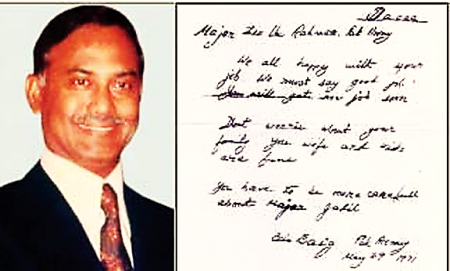 Dacca
Major Zia Ur Rahman, Pak Army
We all happy with your
job. We must say good job.
You will get new job soon
Dont worrie about your
family. Your wife and kids
are fine
You have to be more carefull
about Major Jalil
Col. Baig Pak Army
May 29 1971